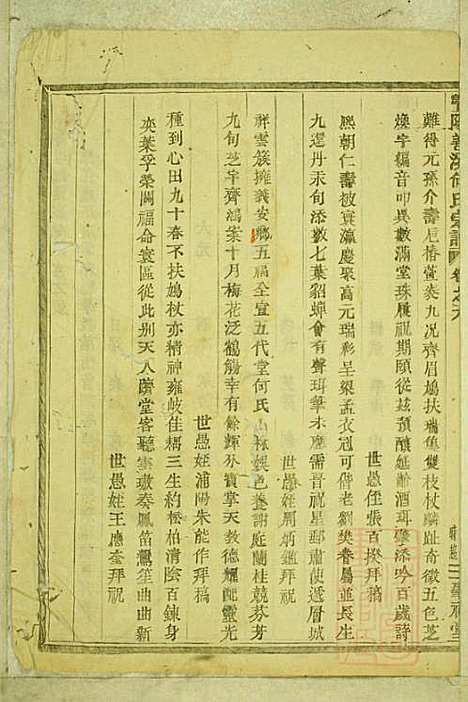 暨陽善溪何氏宗譜 卷之六
難得元孫介壽卮椿萱奕九况齊眉鳩扶瑞魚雙枝杖麟趾奇徵五色芝
煥字編音叩異數滿堂珠履祝期頤從茲預釀延齡酒珥筆添吟百歲詩
世愚侄張百揆拜稿
熙朝仁壽被寰瀛慶聚高元瑞彩呈梁孟衣冠可偕老劉樊眷屬並長生
九還丹汞旬添數七葉貂蟬會有聲珥筆木應需晉祝星郵肅使遞層城
世愚姪周炳鑑拜稿
祥雲簇擁義安鄉五福全宜五代堂何氏山林娛色養謝庭蘭桂競芬芳
九旬芝宇齊鴻案十月梅花泛鶴觴幸有餘輝分寶婺天教德耀配靈光
世愚姪浦陽朱能作拜稿
種到心田九十春不扶鳩杖亦精神雍岐佳耦三生約松柏清陰百鍊身
奕葉孚榮開福命寰區從此别天人躋堂客聽雲璈奏鳳笛鸞笙曲曲新
世愚姪王應奎拜祝